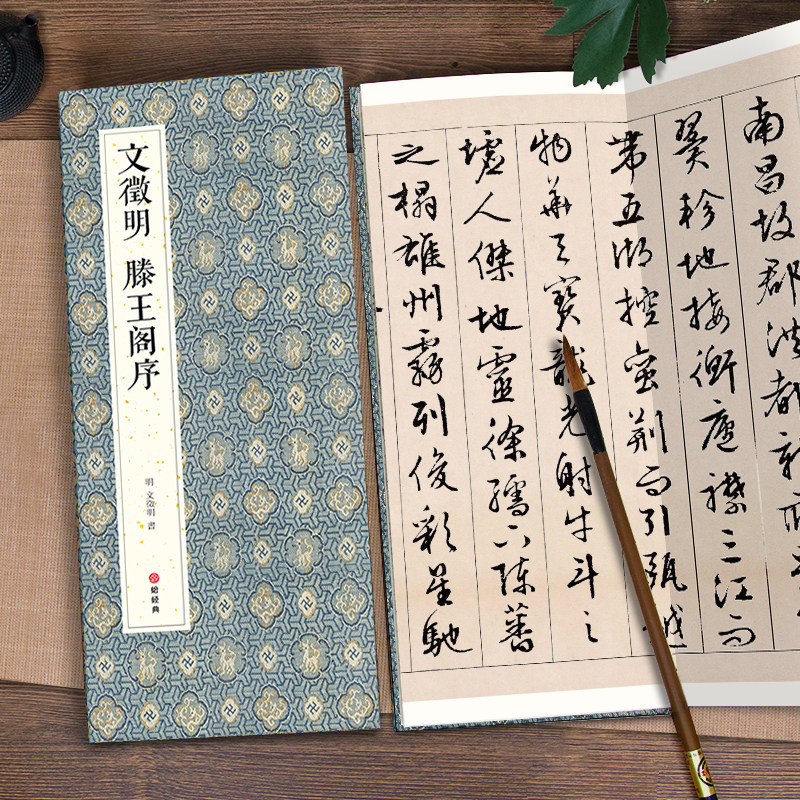 文徵明 滕王阁序
明 文徵明 書
经典
南昌故郡洪都新府
翼軫地接衡廬襟三江而
帶五湖控蛮荆而引甌越
物華天寶龍光射牛斗之
墟人傑地靈徐孺下陳蕃
之榻雄州霧列俊彩星馳